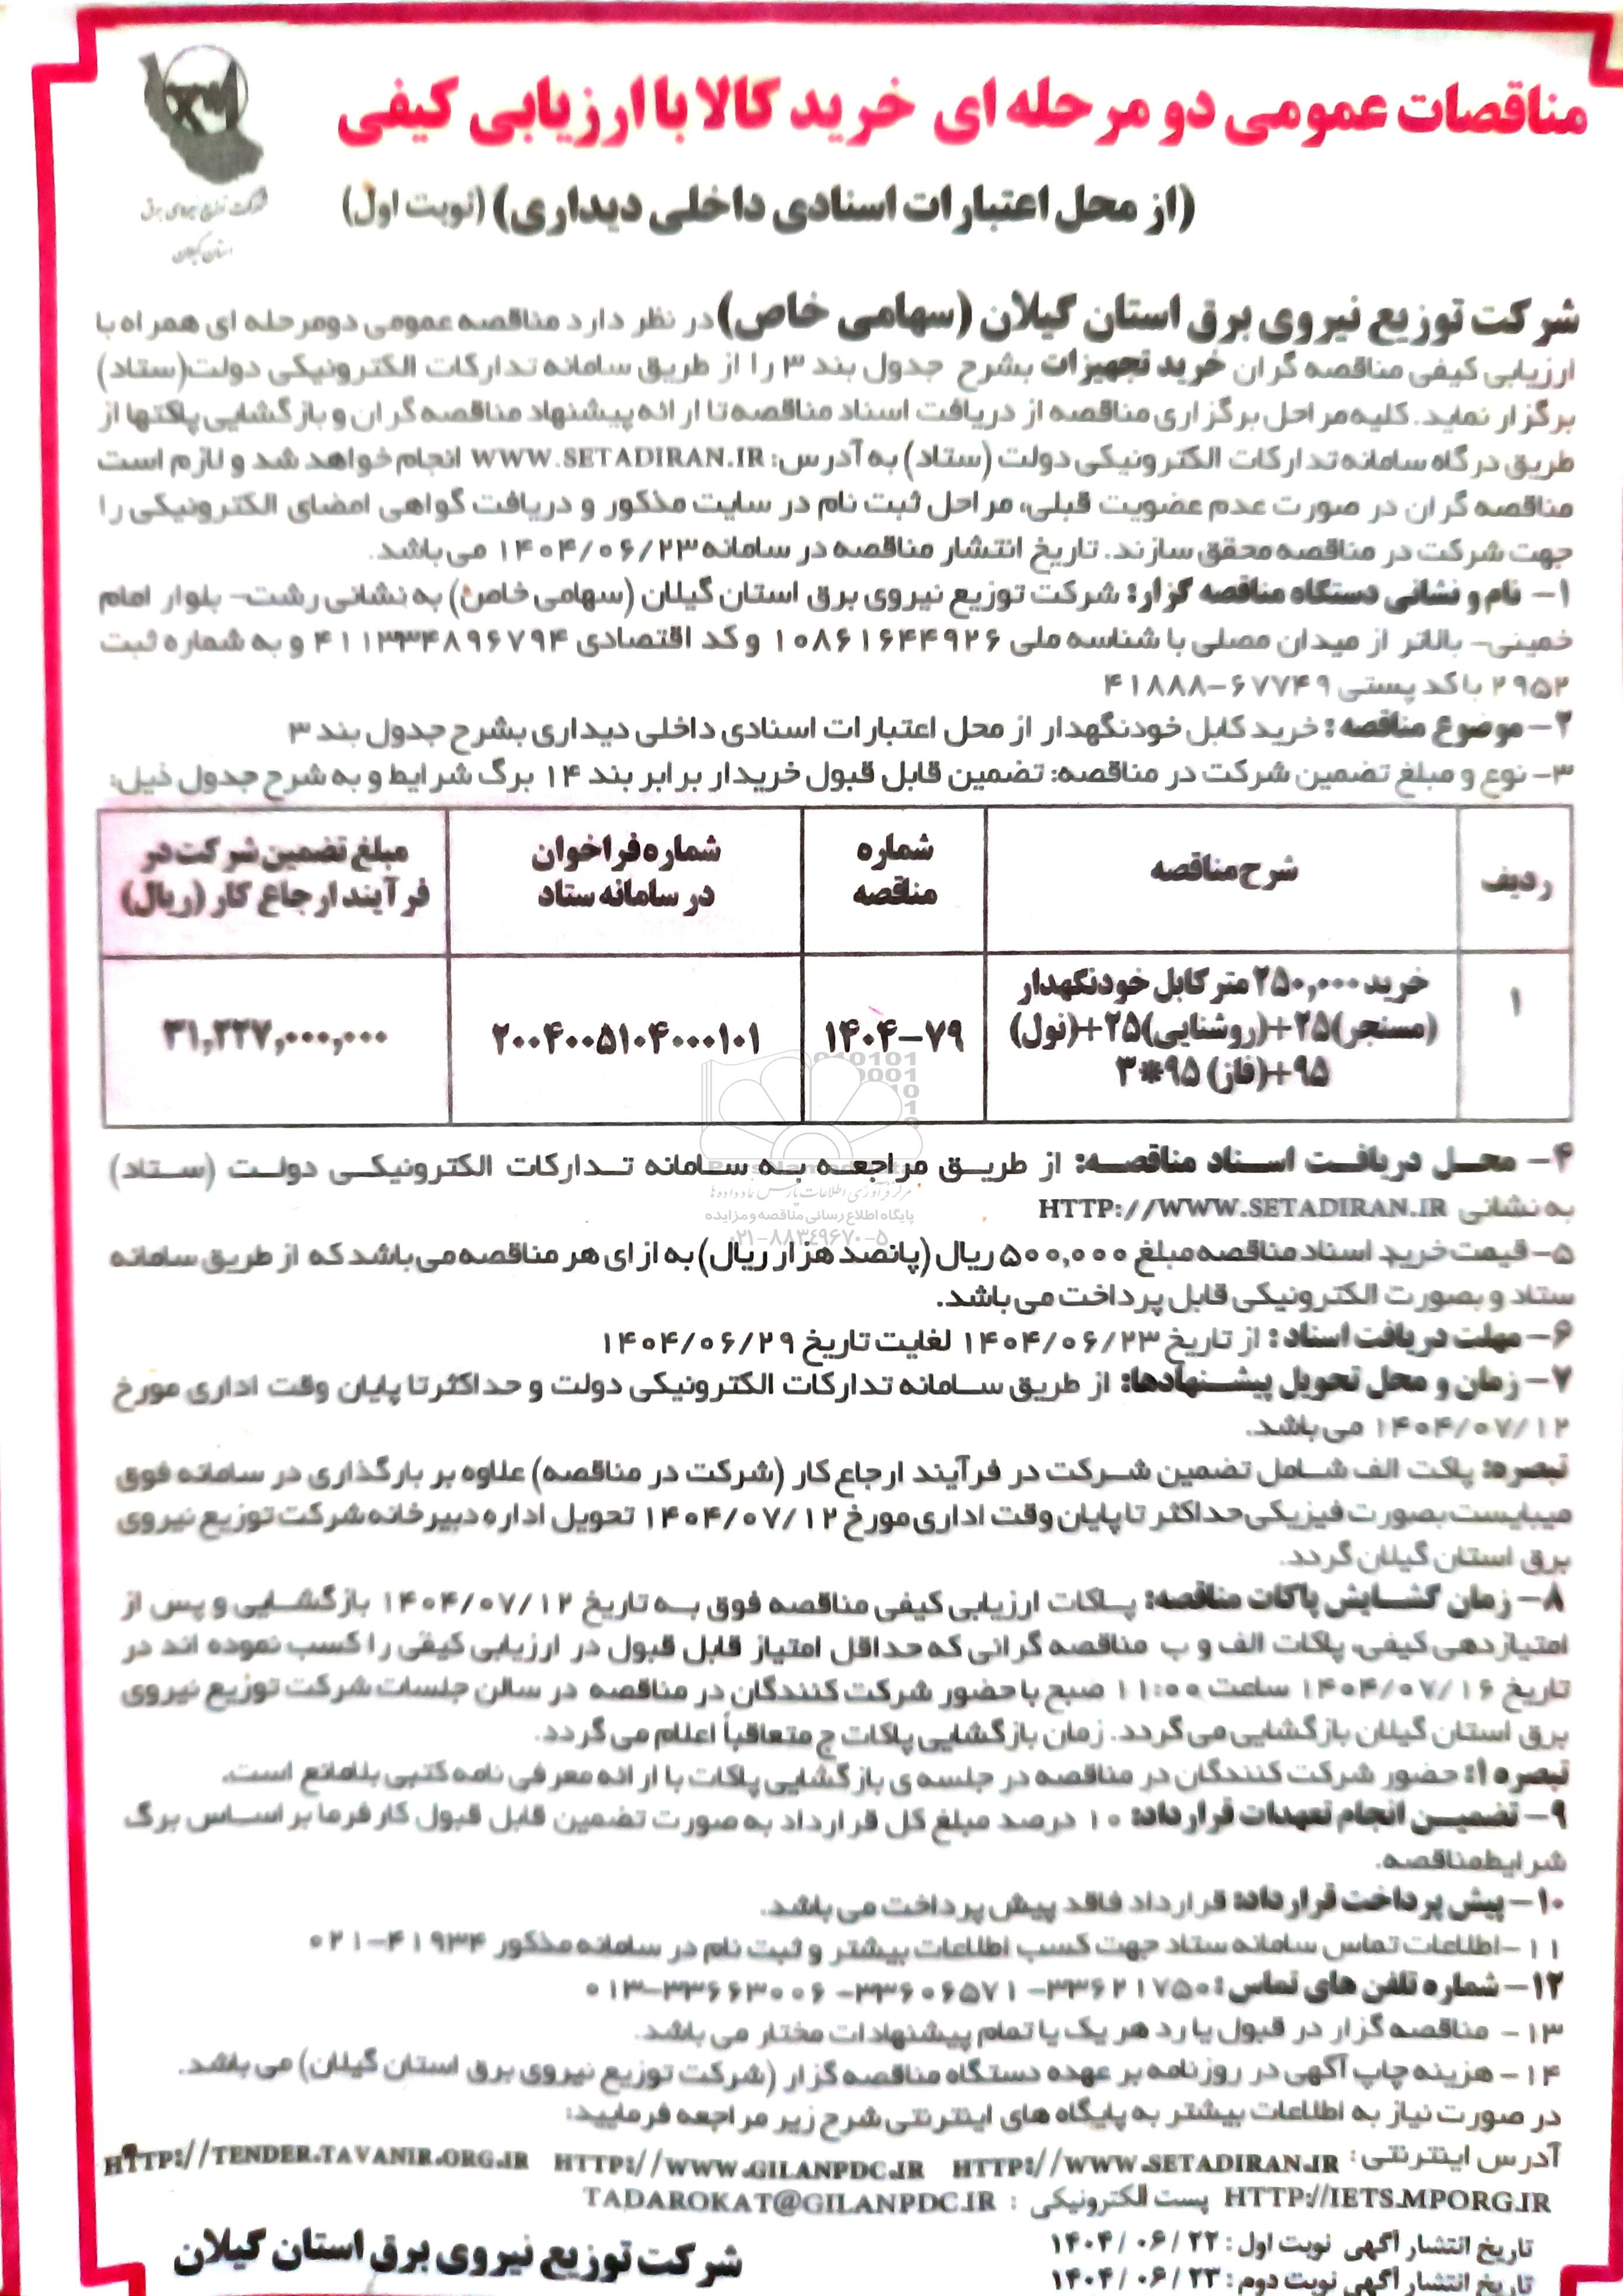 مناقصات عمومی دو مرحله ای خرید کالا با ارزیابی کیفی
(از محل اعتبارات اسنادی داخلی دیداری) (نوبت اول)
شرکت توزیع نیروی برق
استان گیلان
شرکت توزیع نیروی برق استان گیلان (سهامی خاص) در نظر دارد مناقصه عمومی دومرحله ای همراه با
ارزیابی کیفی مناقصه گران خرید تجهیزات بشرح جدول بند ۳ را از طریق سامانه تدارکات الکترونیکی دولت(ستاد)
برگزار نماید. کلیه مراحل برگزاری مناقصه از دریافت اسناد مناقصه تا ارائه پیشنهاد مناقصه گران و بازگشایی پاکتها از
طریق درگاه سامانه تدارکات الکترونیکی دولت (ستاد) به آدرس: WWW.SETADIRAN.IR انجام خواهد شد و لازم است
مناقصه گران در صورت عدم عضویت قبلی، مراحل ثبت نام در سایت مذکور و دریافت گواهی امضای الکترونیکی را
جهت شرکت در مناقصه محقق سازند. تاریخ انتشار مناقصه در سامانه ۱۴۰۴/۰۶/۲۳ می باشد.
۱- نام و نشانی دستگاه مناقصه گزار: شرکت توزیع نیروی برق استان گیلان (سهامی خاص) به نشانی رشت- بلوار امام
خمینی- بالاتر از میدان مصلی با شناسه ملی ۱۰۸۶۱۶۴۴۹۲۶ و کد اقتصادی ۴۱۱۳۳۴۸۹۶۷۹۴ و به شماره ثبت
۲۹۵۲ با کد پستی ۶۷۷۴۹-۴۱۸۸۸
۲- موضوع مناقصه: خرید کابل خودنگهدار از محل اعتبارات اسنادی داخلی دیداری بشرح جدول بند ۳
۳- نوع و مبلغ تضمین شرکت در مناقصه: تضمین قابل قبول خریدار برابر بند ۱۴ برگ شرایط و به شرح جدول ذیل:
ردیف
شرح مناقصه
شماره
مناقصه
شماره فراخوان
در سامانه ستاد
مبلغ تضمین شرکت در
فرآیند ارجاع کار (ریال)
۱
خرید ۲۵۰,۰۰۰ متر کابل خودنگهدار
(مسنجر)۲۵+(روشنایی)۲۵+(نول)
۹۵+(فاز) ۹۵*۳
۱۴۰۴-۷۹
۲۰۰۴۰۰۵۱۰۴۰۰۰۱۰۱
۳۱,۲۲۷,۰۰۰,۰۰۰
۴- محل دریافت اسناد مناقصه: از طریق مراجعه به سامانه تدارکات الکترونیکی دولت (ستاد)
مرکز فرآوری اطلاعات پارس نماد داده ها
به نشانی HTTP://WWW.SETADIRAN.IR
پایگاه اطلاع رسانی مناقصه و مزایده
۰۲۱-۸۸۳۴۹۶۷۰-۵
۵- قیمت خرید اسناد مناقصه مبلغ ۵۰۰,۰۰۰ ریال (پانصد هزار ریال) به ازای هر مناقصه می باشد که از طریق سامانه
ستاد و بصورت الکترونیکی قابل پرداخت می باشد.
۶- مهلت دریافت اسناد: از تاریخ ۱۴۰۴/۰۶/۲۳ لغایت تاریخ ۱۴۰۴/۰۶/۲۹
۷- زمان و محل تحویل پیشنهادها: از طریق سامانه تدارکات الکترونیکی دولت و حداکثر تا پایان وقت اداری مورخ
۱۴۰۴/۰۷/۱۲ می باشد.
تبصره: پاکت الف شامل تضمین شرکت در فرآیند ارجاع کار (شرکت در مناقصه) علاوه بر بارگذاری در سامانه فوق
میبایست بصورت فیزیکی حداکثر تا پایان وقت اداری مورخ ۱۴۰۴/۰۷/۱۲ تحویل اداره دبیرخانه شرکت توزیع نیروی
برق استان گیلان گردد.
۸- زمان گشایش پاکات مناقصه: پاکات ارزیابی کیفی مناقصه فوق به تاریخ ۱۴۰۴/۰۷/۱۲ بازگشایی و پس از
امتیازدهی کیفی، پاکات الف و ب مناقصه گرانی که حداقل امتیاز قابل قبول در ارزیابی کیفی را کسب نموده اند در
تاریخ ۱۴۰۴/۰۷/۱۶ ساعت ۱۱:۰۰ صبح با حضور شرکت کنندگان در مناقصه در سالن جلسات شرکت توزیع نیروی
برق استان گیلان بازگشایی می گردد. زمان بازگشایی پاکات ج متعاقباً اعلام می گردد.
تبصره ۱: حضور شرکت کنندگان در مناقصه در جلسه ی بازگشایی پاکات با ارائه معرفی نامه کتبی بلامانع است.
۹- تضمین انجام تعهدات قرارداد: ۱۰ درصد مبلغ کل قرارداد به صورت تضمین قابل قبول کارفرما بر اساس برگ
شرایط مناقصه.
۱۰- پیش پرداخت قرارداد: قرارداد فاقد پیش پرداخت می باشد.
۱۱-اطلاعات تماس سامانه ستاد جهت کسب اطلاعات بیشتر و ثبت نام در سامانه مذکور ۴۱۹۳۴-۰۲۱
۱۲- شماره تلفن های تماس: ۳۳۶۲۱۷۵۰- ۳۳۶۰۶۵۷۱- ۳۳۶۶۳۰۰۶-۰۱۳
۱۳- مناقصه گزار در قبول یا رد هر یک یا تمام پیشنهادات مختار می باشد.
۱۴- هزینه چاپ آگهی در روزنامه بر عهده دستگاه مناقصه گزار (شرکت توزیع نیروی برق استان گیلان) می باشد.
در صورت نیاز به اطلاعات بیشتر به پایگاه های اینترنتی شرح زیر مراجعه فرمایید:
آدرس اینترنتی: HTTP://WWW.SETADIRAN.IR HTTP://WWW.GILANPDC.IR HTTP://TENDER.TAVANIR.ORG.IR
HTTP://IETS.MPORG.IR پست الکترونیکی : TADAROKAT@GILANPDC.IR
تاریخ انتشار آگهی نوبت اول: ۱۴۰۴/۰۶/۲۲
تاریخ انتشار آگهی نوبت دوم: ۱۴۰۴/۰۶/۲۳
شرکت توزیع نیروی برق استان گیلان